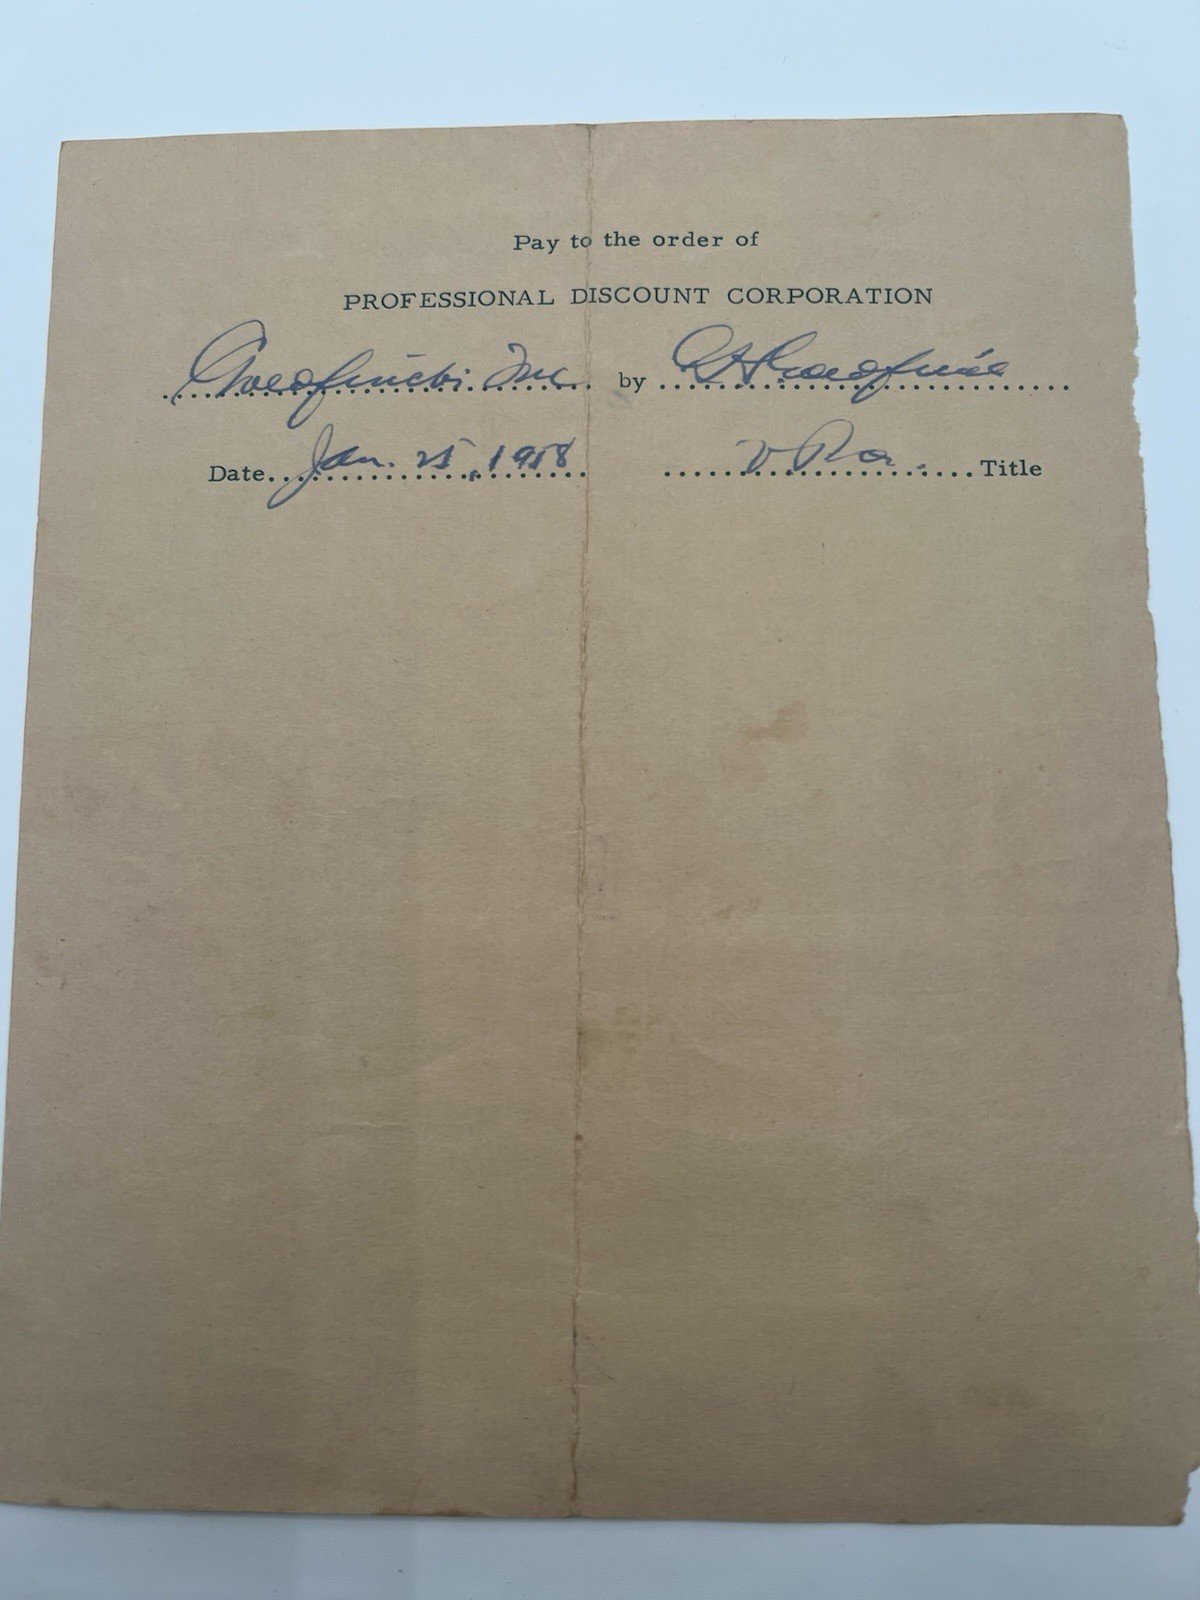 Pay to the order of
PROFESSIONAL DISCOUNT CORPORATION
Inc. by
Date Jan. 25, 1958 V Pres. Title